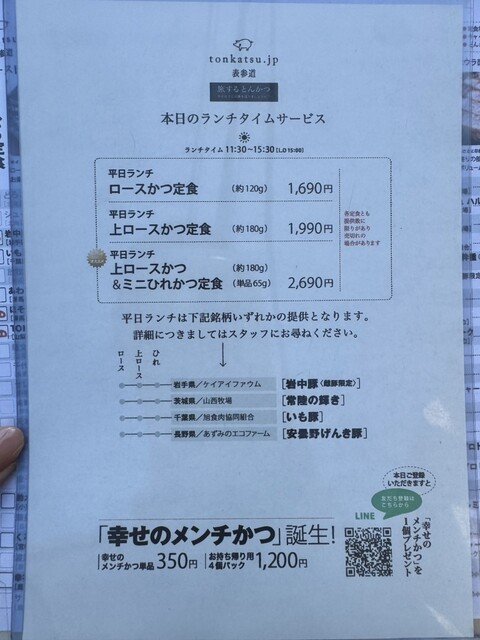 tonkatsu.jp
表参道
旅するとんかつ
本日のランチタイムサービス
ランチタイム 11:30~15:30 [L.O 15:00]
平日ランチ
ロースかつ定食 (約120g) 1,690円
平日ランチ
上ロースかつ定食 (約180g) 1,990円
平日ランチ
上ロースかつ (約180g)
&ミニひれかつ定食 (単品65g) 2,690円
各定食とも
提供数に
限りがあり
売切れの
場合があります
平日ランチは下記銘柄いずれかの提供となります。
詳細につきましてはスタッフにお尋ねください。
ロース
上ロース
ひれ
岩手県/ケイアイファウム [岩中豚〈雌豚限定〉]
茨城県/山西牧場 [常陸の輝き]
千葉県/旭食肉協同組合 [いも豚]
長野県/あずみのエコファーム [安曇野げんき豚]
本日ご登録
いただきますと
友だち登録は
こちらから
LINE
「幸せの
メンチかつ」を
1個プレゼント
「幸せのメンチかつ」誕生!
幸せの
メンチかつ単品 350円
お持ち帰り用
4個パック 1,200円